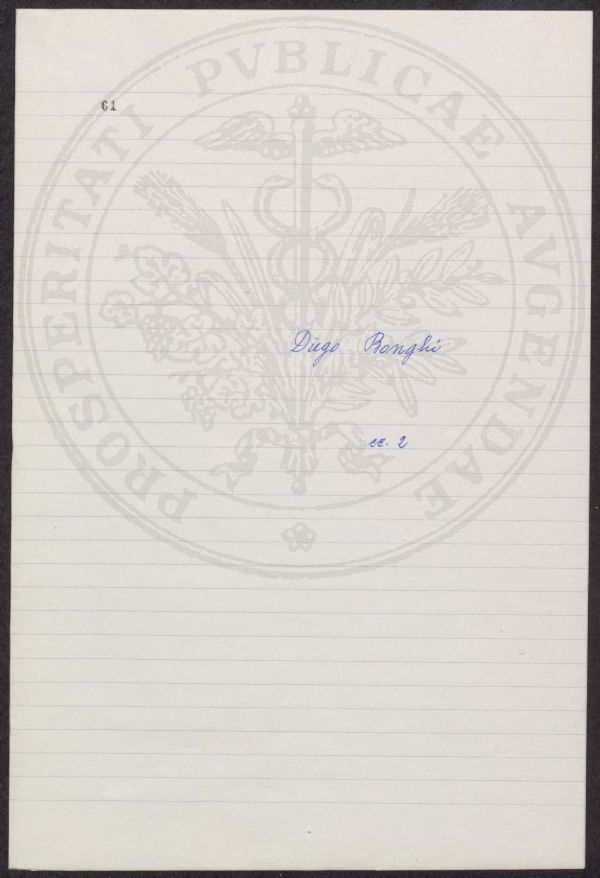 PROSPERITATI PVBLICAE AVGENDAE
61
Diego Bonghi
cc. 2